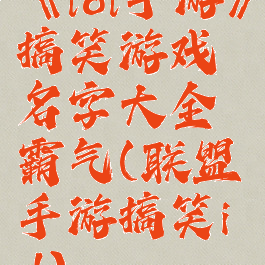 《lol手游》
搞笑游戏
名字大全
霸气(联盟
手游搞笑i